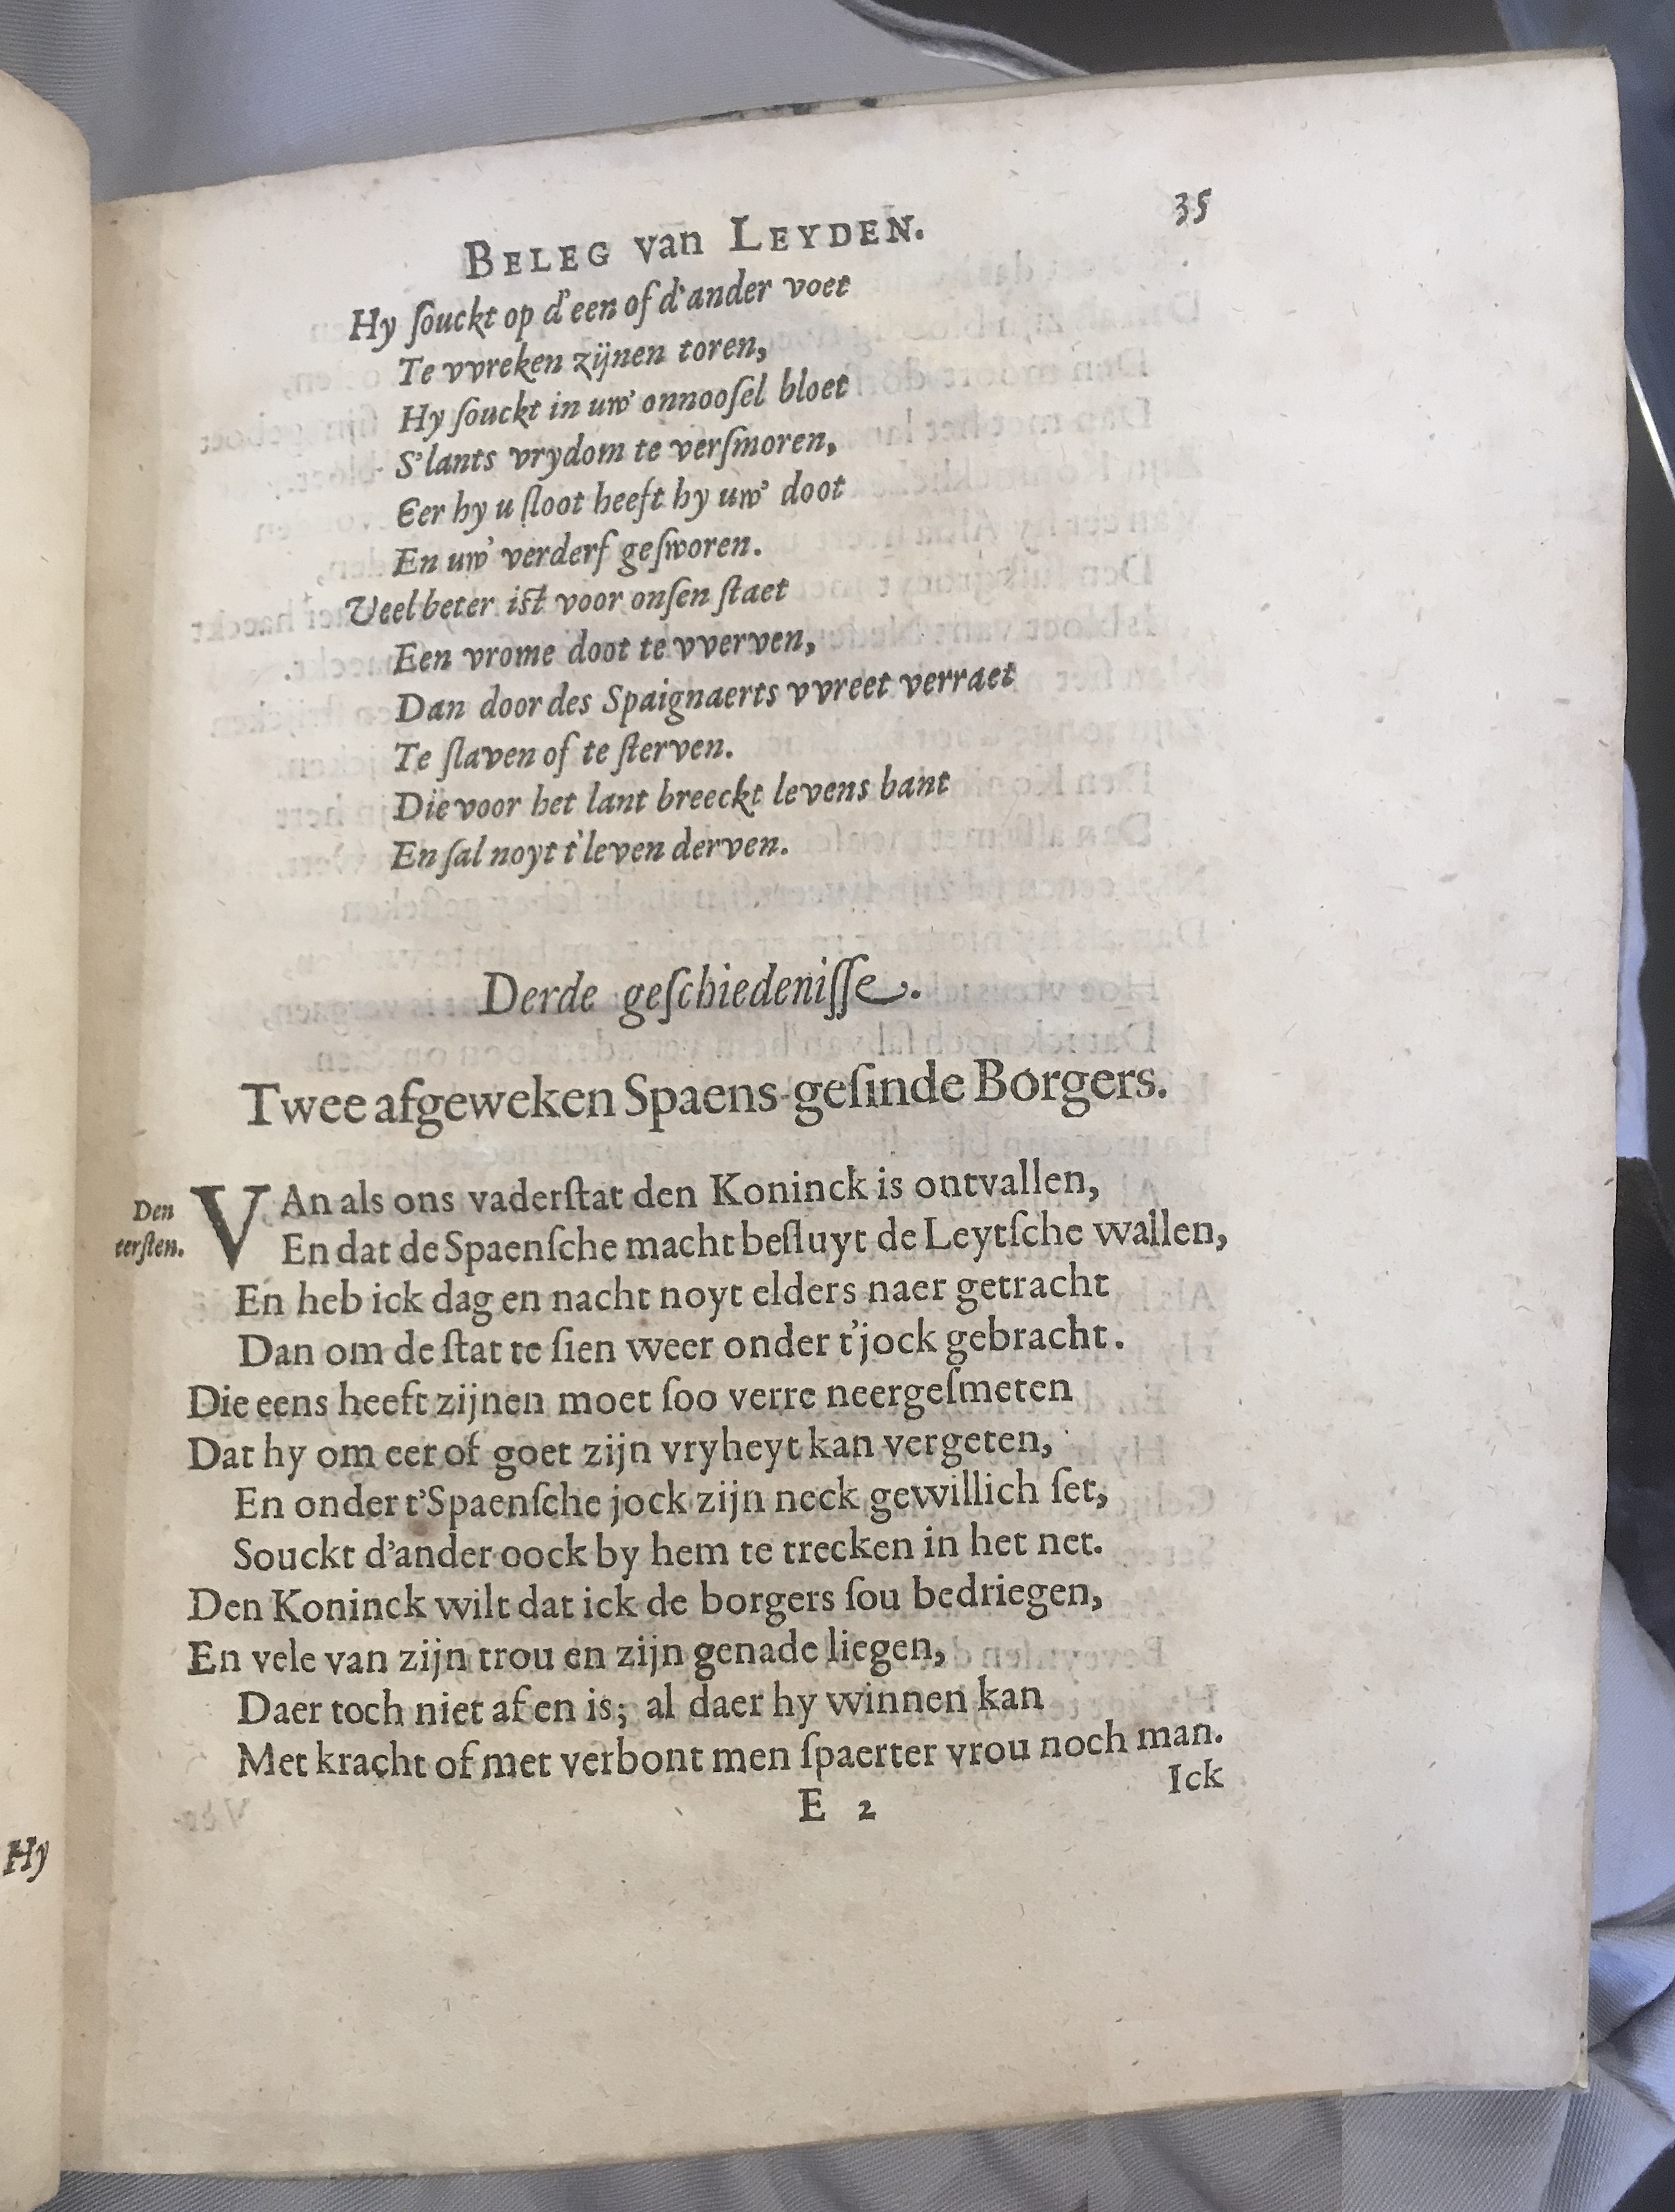 BELEG van LEYDEN. 35
Hy ſouckt op d'een of d'ander voet
Te vvreken zijnen toren,
Hy ſouckt in uw' onnooſel bloet
S'lants vrydom te verſmoren,
Eer hy u ſloot heeft hy uw' doot
En uw' verderf geſworen.
Veel beter iſt voor onſen ſtaet
Een vrome doot te vverven,
Dan door des Spaignaerts vvreet verraet
Te ſlaven of te ſterven.
Die voor het lant breeckt levens bant
En ſal noyt t'leven derven.
Derde geſchiedeniſſe.
Twee afgeweken Spaens-geſinde Borgers.
Den eerſten.
VAn als ons vaderſtat den Koninck is ontvallen,
En dat de Spaenſche macht beſluyt de Leytſche wallen,
En heb ick dag en nacht noyt elders naer getracht
Dan om de ſtat te ſien weer onder t'jock gebracht.
Die eens heeft zijnen moet ſoo verre neergeſmeten
Dat hy om eer of goet zijn vryheyt kan vergeten,
En onder t'Spaenſche jock zijn neck gewillich ſet,
Souckt d'ander oock by hem te trecken in het net.
Den Koninck wilt dat ick de borgers ſou bedriegen,
En vele van zijn trou en zijn genade liegen,
Daer toch niet af en is; al daer hy winnen kan
Met kracht of met verbont men ſpaerter vrou noch man.
E 2
Ick
Hy